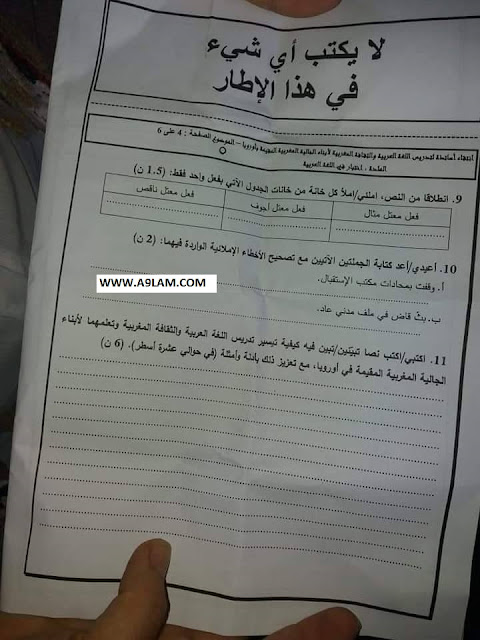 لا يكتب أي شيء
في هذا الإطار
انتقاء أساتذة لتدريس اللغة العربية والثقافة المغربية لأبناء الجالية المغربية المقيمة بأوروبا – الموضوع الصفحة : 4 على 6
المادة : اختبار في اللغة العربية
9. انطلاقا من النص، املئي/املأ كل خانة من خانات الجدول الآتي بفعل واحد فقط: (1.5 ن)
فعل معتل مثال فعل معتل أجوف فعل معتل ناقص
10. أعيدي/أعد كتابة الجملتين الآتيين مع تصحيح الأخطاء الإملائية الواردة فيهما: (2 ن)
أ. وقفت بمحادات مكتب الإستقبال.
WWW.A9LAM.COM
ب. بث قاض في ملف مدني عاد.
11. اكتبي/اكتب نصا تبيّنين/تبين فيه كيفية تيسير تدريس اللغة العربية والثقافة المغربية وتعلمهما لأبناء
الجالية المغربية المقيمة في أوروبا، مع تعزيز ذلك بأدلة وأمثلة (في حوالي عشرة أسطر). (6 ن)